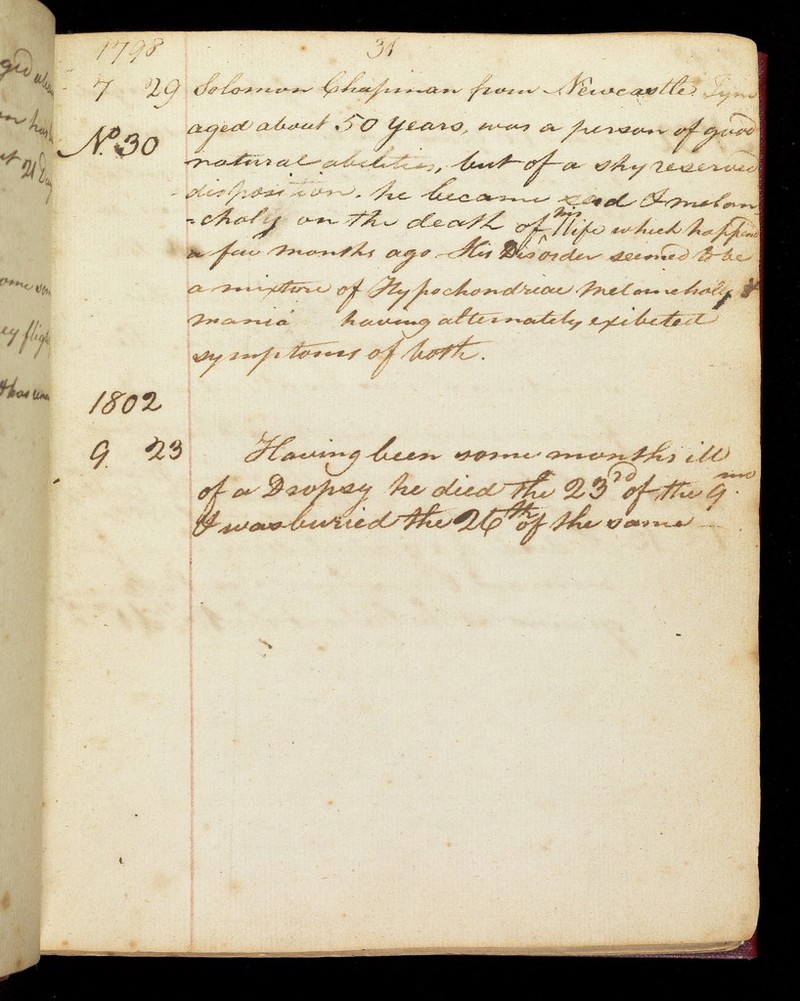 1798 31
7 29 Solomon Chapman from Newcastle Tyne
aged about 50 years, was a person of good
No. 30
natural abilities, but of a shy reserved
disposition. he became sad & melan
=choly on the death of his Wife which happened
a few months ago - His Disorder seemed to be
a mixture of Hypochondriac Melancholy &
mania having alternately exibeted
symptoms of both.
1802
9. 23 Having been some months ill
of a Dropsy he died the 23rd of the 9mo.
& was buried the 26th of the same